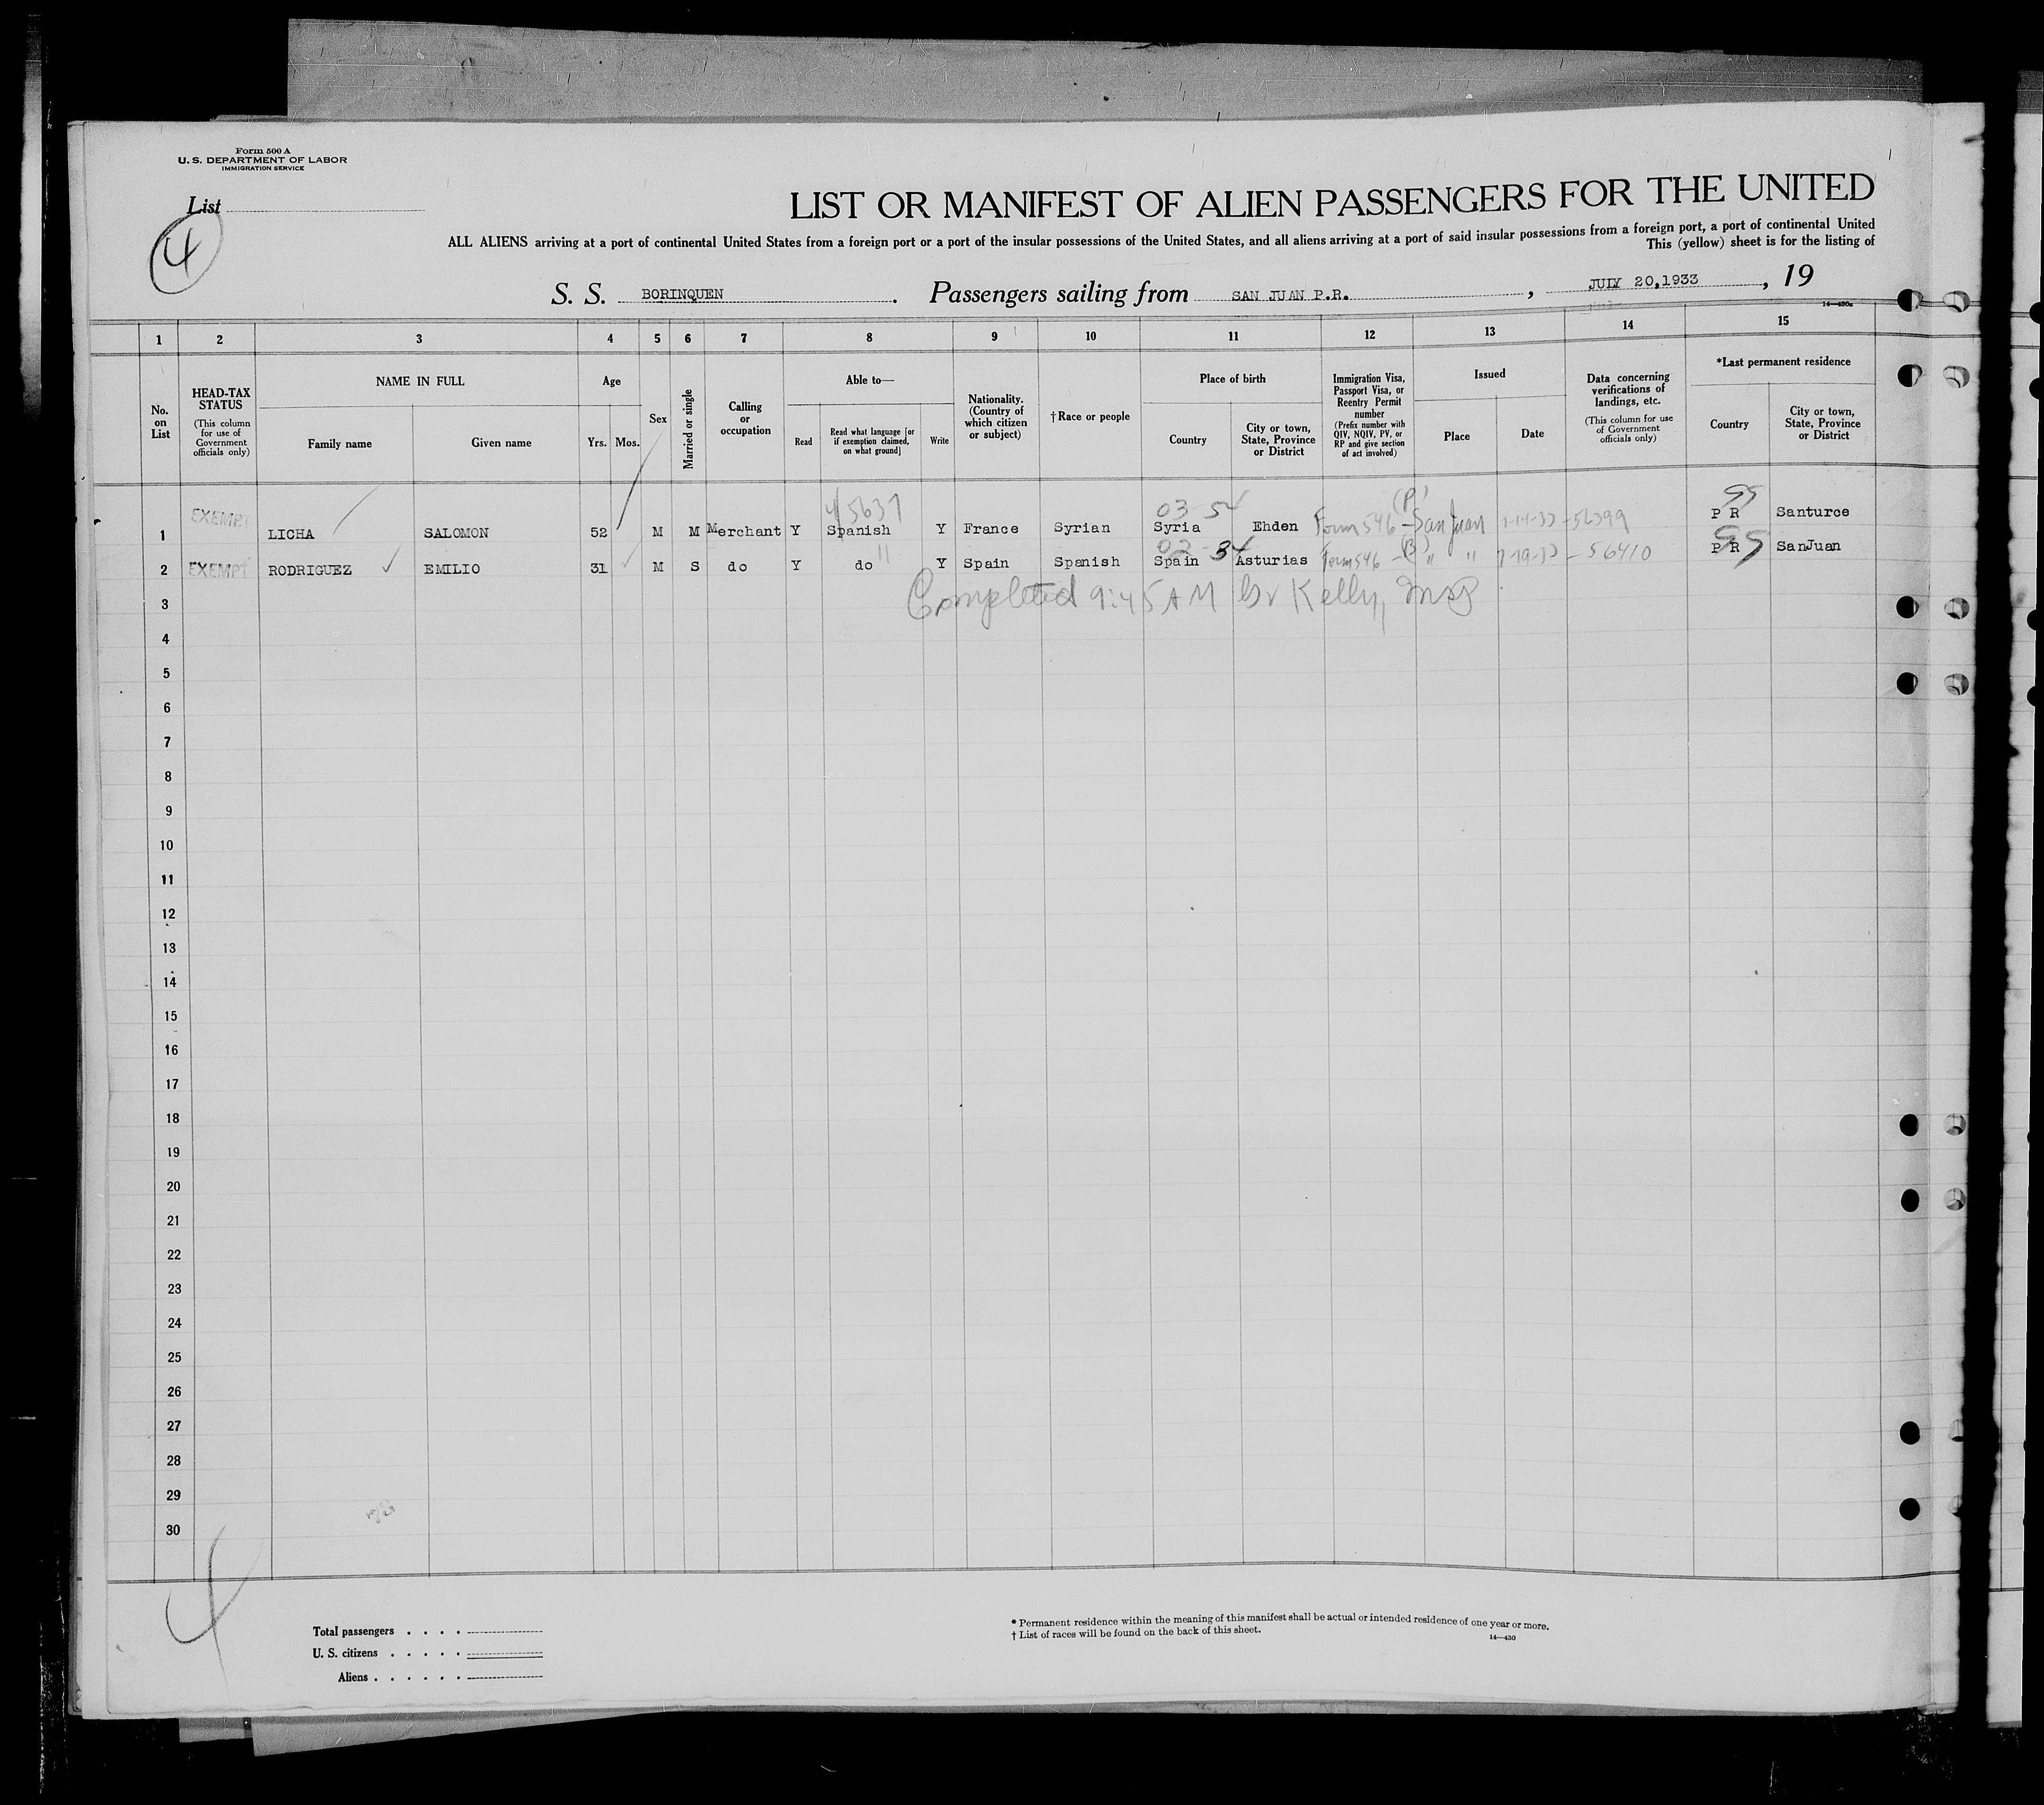 Form 500 A
U. S. DEPARTMENT OF LABOR
IMMIGRATION SERVICE
List
4
LIST OR MANIFEST OF ALIEN PASSENGERS FOR THE UNITED
ALL ALIENS arriving at a port of continental United States from a foreign port or a port of the insular possessions of the United States, and all aliens arriving at a port of said insular possessions from a foreign port, a port of continental United
This (yellow) sheet is for the listing of
S. S. BORINQUEN. Passengers sailing from SAN JUAN P.R., JULY 20,1933, 19
14—430a
1 2 3 4 5 6 7 8 9 10 11 12 13 14 15
No. on List
HEAD-TAX STATUS
(This column for use of Government officials only)
NAME IN FULL
Family name
Given name
Age
Yrs. Mos.
Sex
Married or single
Calling or occupation
Able to—
Read
Read what language [or if exemption claimed, on what ground]
Write
Nationality. (Country of which citizen or subject)
†Race or people
Place of birth
Country
City or town, State, Province or District
Immigration Visa, Passport Visa, or Reentry Permit number
(Prefix number with QIV, NQIV, PV, or RP and give section of act involved)
Issued
Place
Date
Data concerning verifications of landings, etc.
(This column for use of Government officials only)
*Last permanent residence
Country
City or town, State, Province or District
03-54
1 EXEMPT LICHA SALOMON 52 M M Merchant Y Spanish Y France Syrian Syria Ehden Form 546 - San Juan 56399 P R Santurce
2 EXEMPT RODRIGUEZ EMILIO 31 M S do Y do Y Spain Spanish Spain Asturias Form 546 " " 7-19-33 - 56410 P R SanJuan
3 Completed 9:45 AM Kelly,
4
5
6
7
8
9
10
11
12
13
14
15
16
17
18
19
20
21
22
23
24
25
26
27
28
29
30
4
Total passengers . . . .
U. S. citizens . . . . .
Aliens . . . . . .
* Permanent residence within the meaning of this manifest shall be actual or intended residence of one year or more.
† List of races will be found on the back of this sheet.
14—430